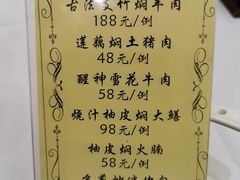 古法支竹焖羊肉
188元/例
莲藕焖土猪肉
48元/例
醒神雪花牛肉
58元/例
烧汁柚皮焖大鳝
98元/例
柚皮焖火腩
58元/例